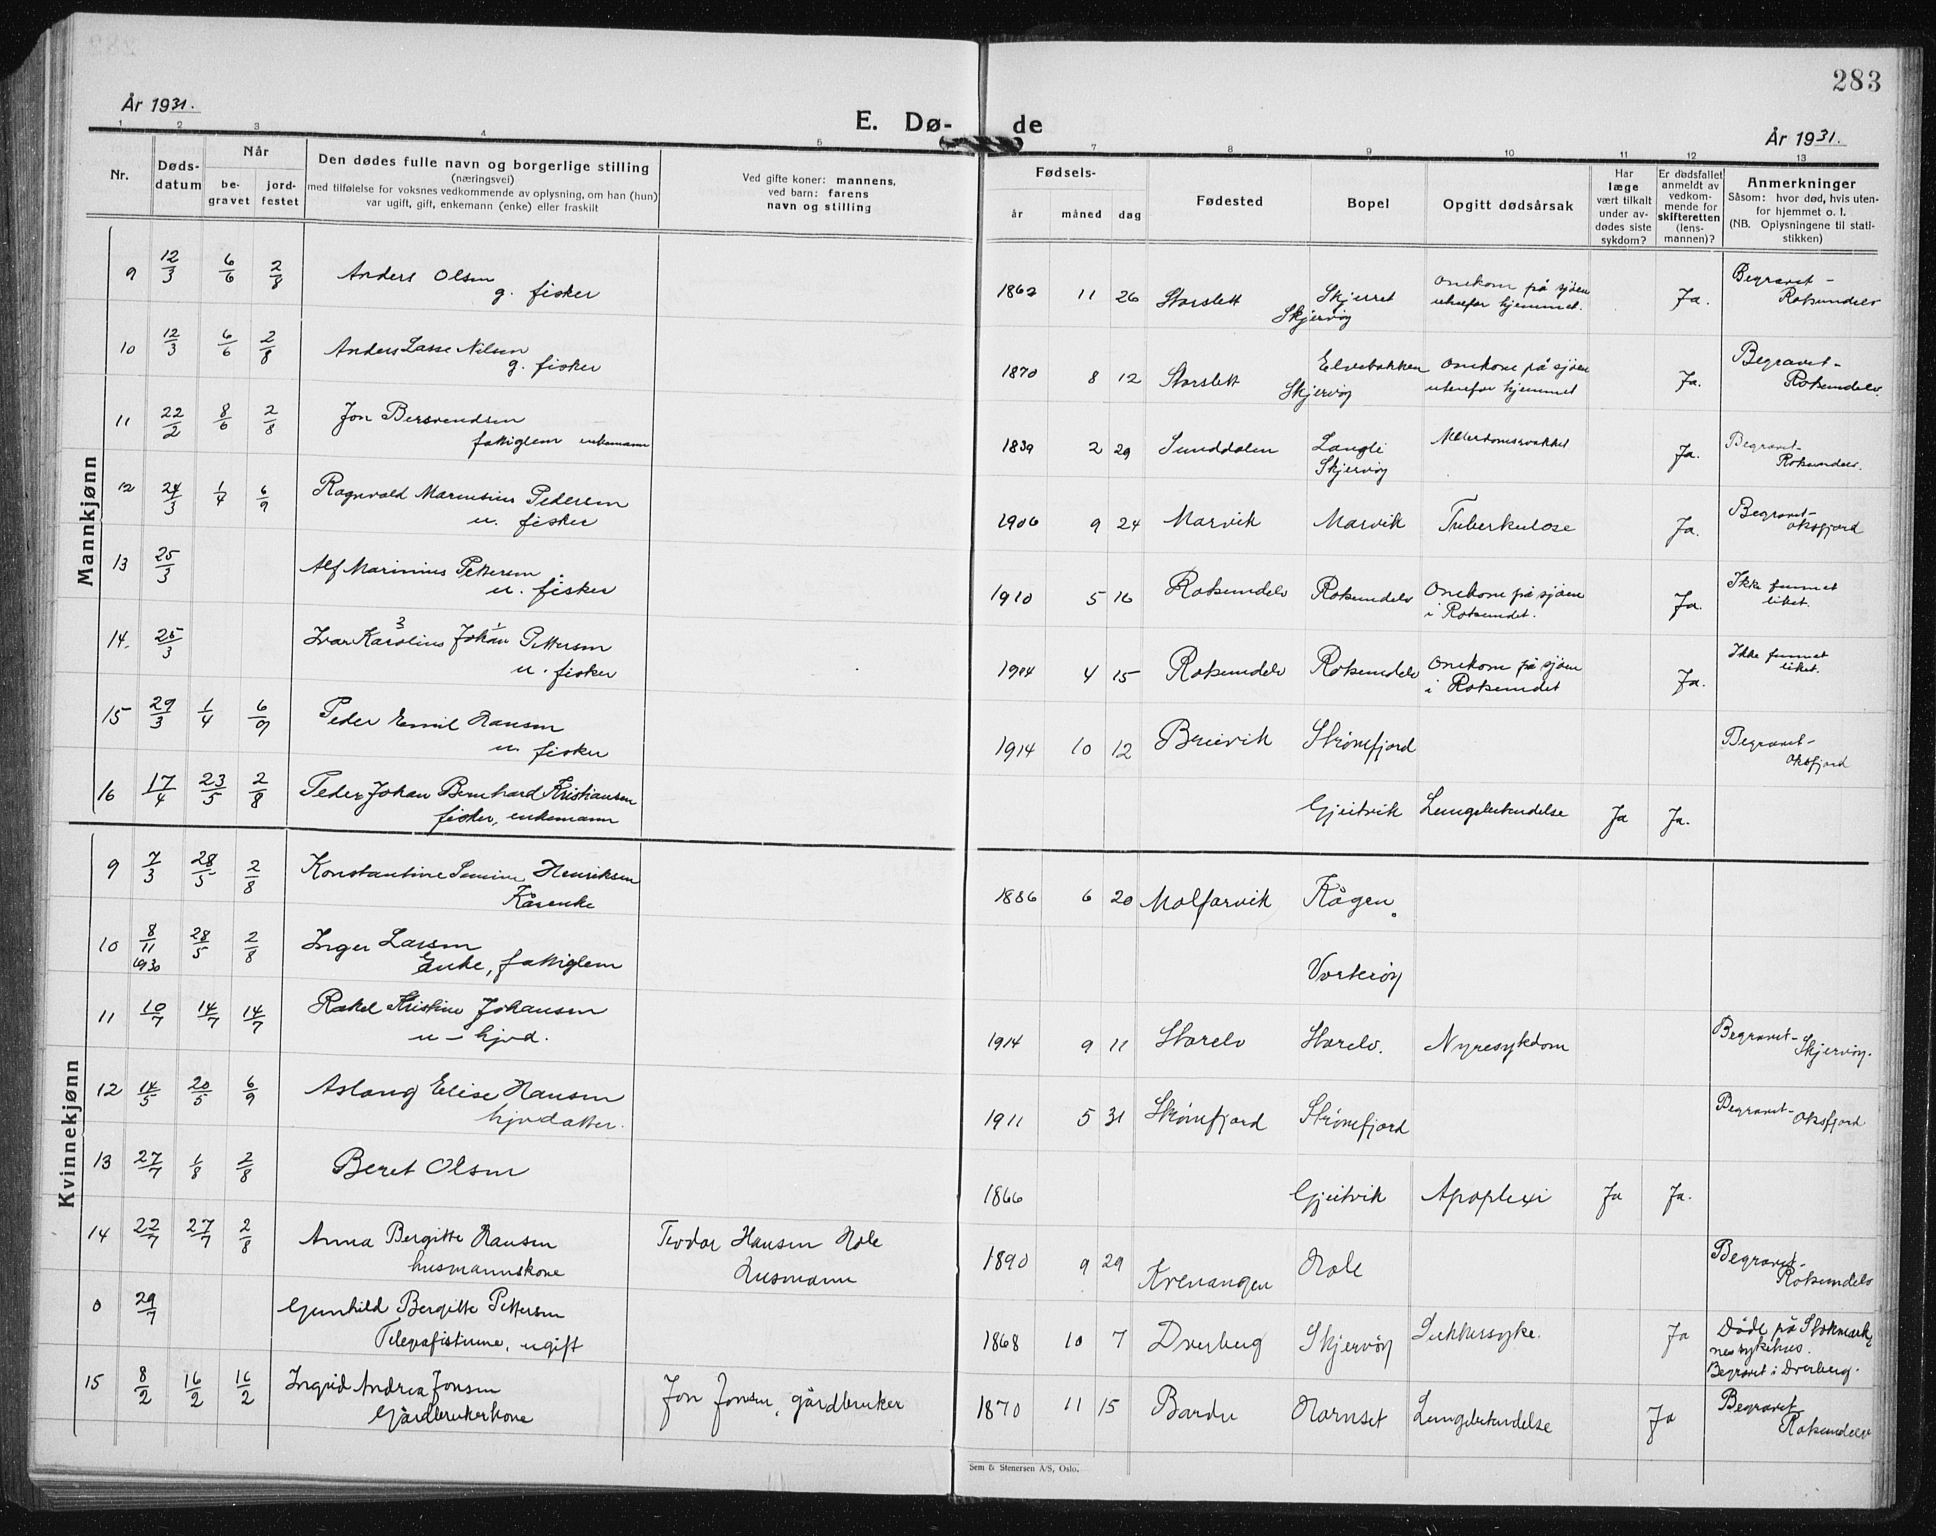 283
År 1931.
E. Dø-
de
År 1931.
1 2 3 4 5 7 8 9 10 11 12 13
Nr.
Døds-
datum
Når
be-
gravet
jord-
festet
Den dødes fulle navn og borgerlige stilling
(næringsvei)
med tilføielse for voksnes vedkommende av oplysning, om han (hun)
var ugift, gift, enkemann (enke) eller fraskilt
Ved gifte koner: mannens,
ved barn: farens
navn og stilling
Fødsels-
år måned dag
Fødested
Bopel
Opgitt dødsårsak
Har
læge
vært tilkalt
under av-
dødes siste
sykdom?
Er dødsfallet
anmeldt av
vedkom-
mende for
skifteretten
(lens-
mannen)?
Anmerkninger
Såsom: hvor død, hvis uten-
for hjemmet o. l.
(NB. Oplysningene til stati-
stikken)
Mannkjønn
9 12/3 6/6 2/8 Anders Olsen 1862 11 26 Storslett Skjerret Omekom på sjøen Ja. Begravet-
g. fisker Skjervøy utenfor hjemmet. Rotsundelv
10 12/3 6/6 2/8 Anders Lasse Nilsen 1870 8 12 Storslett Elvebakken Omekom på sjøen Ja. Begravet-
g. fisker Skjervøy utenfor hjemmet Rotsundelv.
11 22/2 8/6 2/8 Jon Bersvendsen 1839 2 29 Sunddalen Langli Alderdomssvakhet Ja. Begravet-
fattiglem enkemann Skjervøy Rotsundelv.
12 24/3 1/4 6/9 Ragnvald Marensius Pedersen 1906 9 24 Marvik Marvik Tuberkulose Ja. Begravet-
u. fisker oksfjord
13 25/3 Alf Marinius Pettersen 1910 5 16 Rotsundelv Rotsundelv Omekom på sjøen Ja. Ikke funnet
u. fisker i Rotsundet. liket.
14. 25/3 Ivar Karolius Johan Pettersen 1904 4 15 Rotsundelv Rotsundelv Omekom på sjøen Ja. Ikke funnet
u. fisker i Rotsundet liket.
15 29/3 1/4 6/9 Peder Emil Hansen 1914 10 12 Breivik Strømfjord Begravet-
u. fisker oksfjord
16 17/4 23/5 2/8 Peder Johan Bernhard Kristiansen Gjeitvik Lungebetendelse Ja Ja.
fisker, enkemann
Kvinnekjønn
9 7/3 28/5 2/8 Konstantine Henriksen 1886 6 20 Molfarvik Kågen
10 8/11 1930 28/5 2/8 Inger Larsen Vorterøy
Enke, fattiglem
11 10/7 14/7 14/7 Rakel Kristine Johansen 1914 9 11 Storelv Storelv. Nyresykdom Begravet-
u - hjvd. Skjervøy.
12 14/5 20/5 6/9 Aslaug Elise Hansen 1911 5 31 Strømfjord Strømfjord Begravet-
hjvdatter. oksfjord
13 27/7 1/8 2/8 Beret Olsen 1866 Gjeitvik Apoplexi Ja Ja.
14 22/7 27/7 2/8 Anna Bergitte Hansen Teodor Hansen Hole 1890 9 29 Kvenangen Hole Begravet-
husmannskone Husmann Rotsundelv
0 29/7 Gunhild Bergitte Pettersen 1868 10 7 Dverberg Skjervøy Sukkersyke. Ja Døde på Stokmark
Telegrafistinne, ugift nes sykehus.
Begravet i Dverberg.
15 8/2 16/2 16/2 Ingrid Andrea Jonsen Jon Jonsen, gårdbruker 1870 11 15 Bardu Hamset Lungebetendelse Ja Begravet
Gårdbrukerkone Rotsundelv
Sem & Stenersen A/S, Oslo.